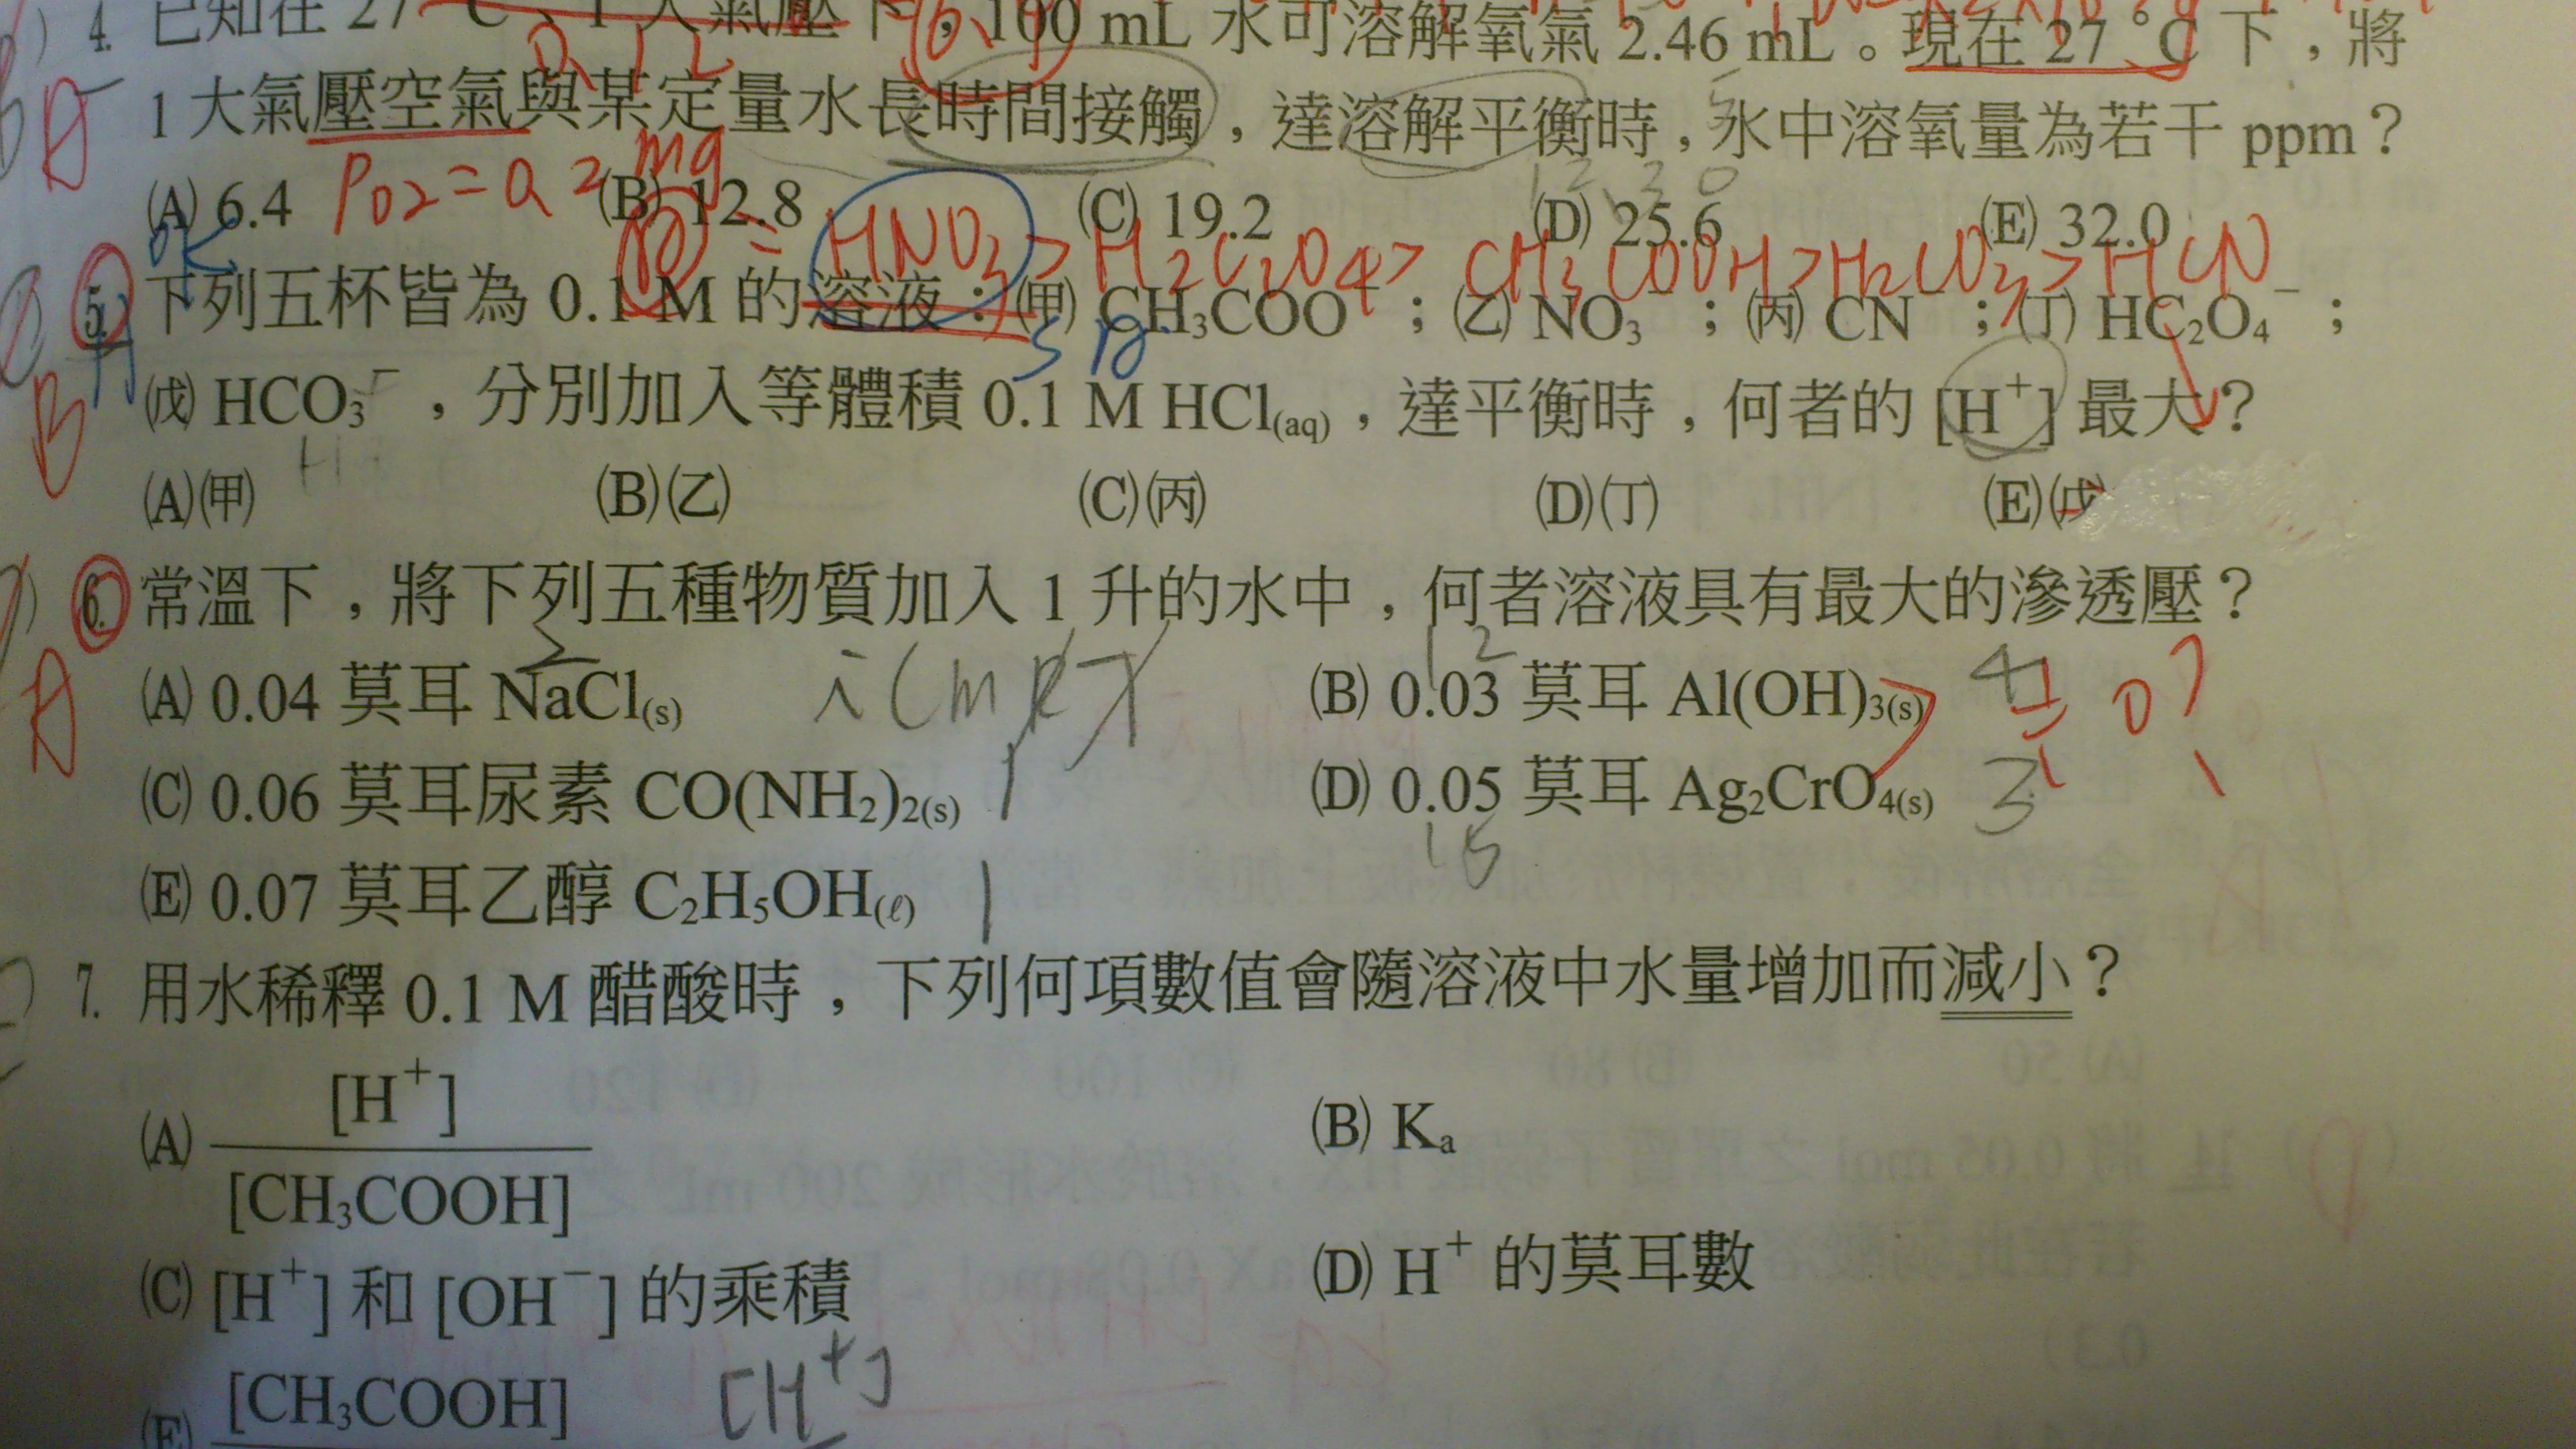 4. 已知在 27 °C、1 大氣壓下,100 mL 水可溶解氧氣 2.46 mL。現在 27 °C 下,將
1 大氣壓空氣與某定量水長時間接觸,達溶解平衡時,水中溶氧量為若干 ppm?
A
mg
(A) 6.4 (B) 12.8 (C) 19.2 (D) 25.6 (E) 32.0
OK
HNO3 > H2C2O4 > CH3COOH > H2CO3 > HCN
5. 下列五杯皆為 0.1 M 的溶液:(甲) CH3COO⁻;(乙) NO3⁻;(丙) CN⁻;(丁) HC2O4⁻;
B
(戊) HCO3⁻,分別加入等體積 0.1 M HCl(aq),達平衡時,何者的 [H⁺] 最大?
(A)(甲) (B)(乙) (C)(丙) (D)(丁) (E)(戊)
6. 常溫下,將下列五種物質加入 1 升的水中,何者溶液具有最大的滲透壓?
A
2
12
(A) 0.04 莫耳 NaCl(s) (B) 0.03 莫耳 Al(OH)3(s) 4
(C) 0.06 莫耳尿素 CO(NH2)2(s) 1 (D) 0.05 莫耳 Ag2CrO4(s) 3
15
(E) 0.07 莫耳乙醇 C2H5OH(ℓ) 1
7. 用水稀釋 0.1 M 醋酸時,下列何項數值會隨溶液中水量增加而減小?
(A) [H⁺] / [CH3COOH] (B) Ka
(C) [H⁺] 和 [OH⁻] 的乘積 (D) H⁺ 的莫耳數
(E) [CH3COOH] [H⁺]